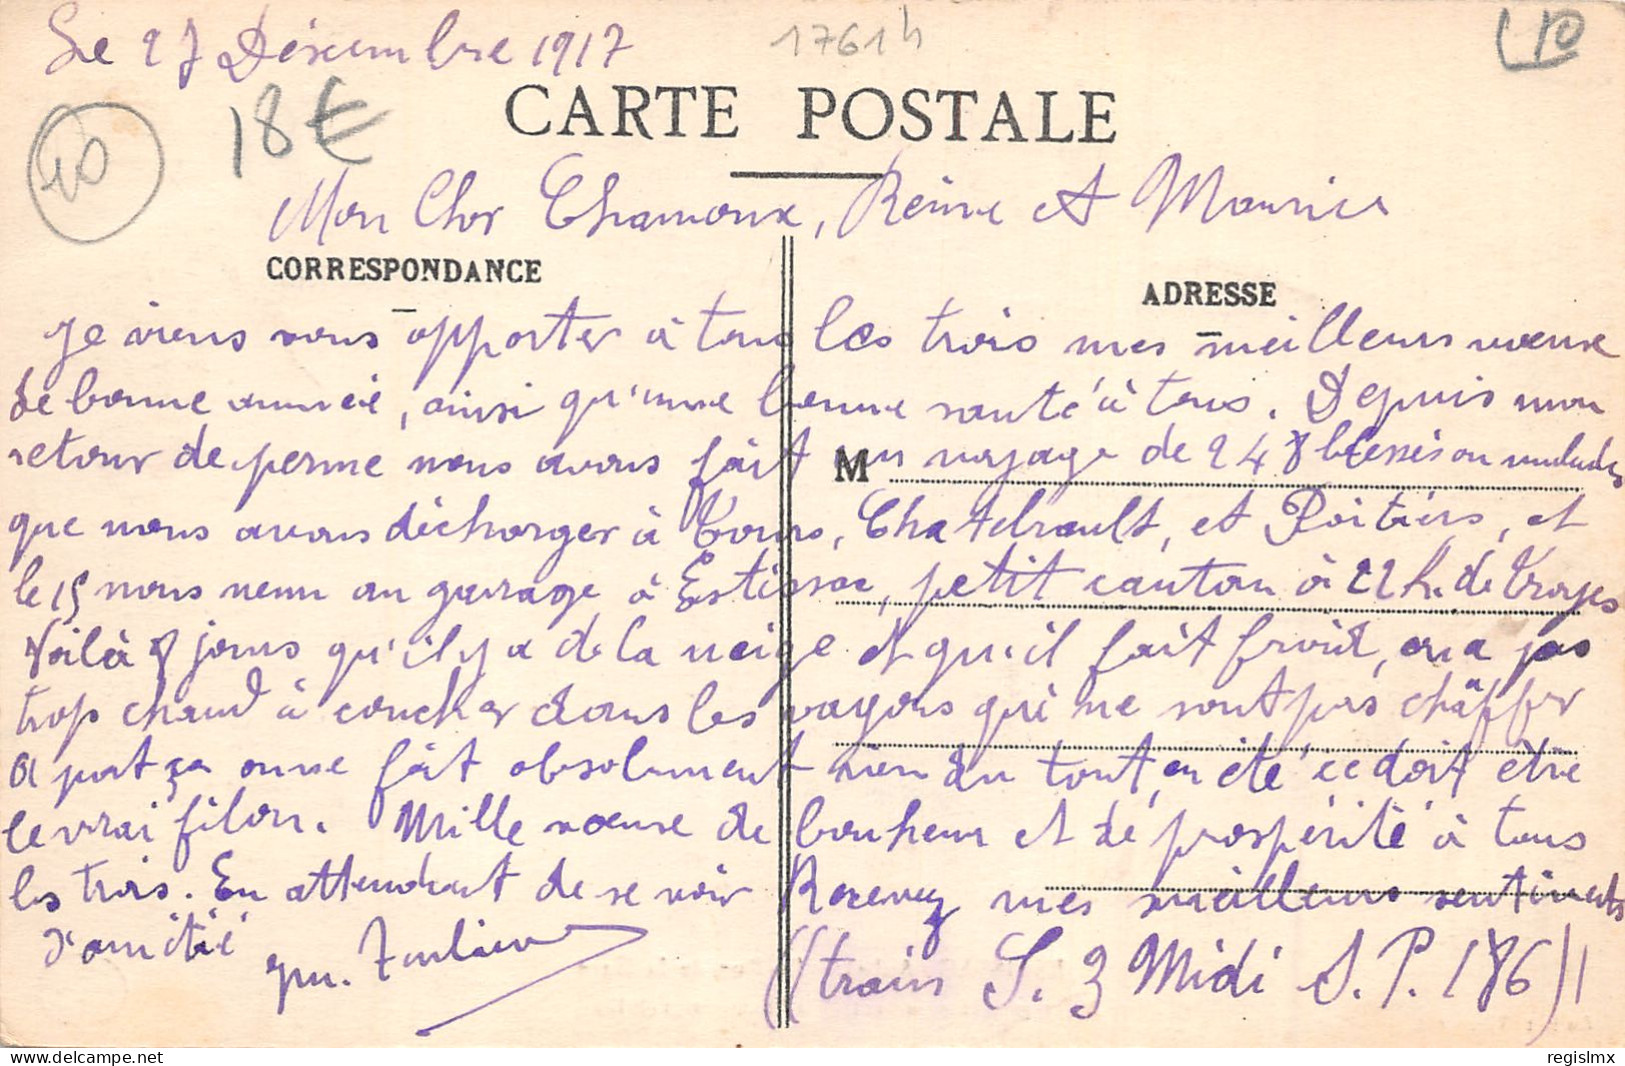 Le 27 Désembre 1917
17614
10
10
18€
CARTE POSTALE
Mon Cher Chamoux, Reine et Maurice
CORRESPONDANCE
ADRESSE
je viens vous apporter à tous les trois mes meilleurs voeux
de bonne année, ainsi qu'une bonne santé à tous. Depuis mon
retour de perme nous avons fait M un voyage de 248 blessés ou malades
que nous avons décharger à Tours, Chatelrault, et Poitiers, et
le 15 nous venu au garrage à Estissac, petit canton à 22 k. de Troyes
Voilà 8 jours qu'il y a de la neige et qu'il fait froid, on a pas
trop chaud à coucher dans les vagons qui ne sont pas chäffer
a part ça on ne fait absolument rien du tout, en été ce doit être
le vrai filon. Mille voeux de bonheur et de prospérité à tous
les trois. En attendant de se voir Recevez mes meilleurs sentiments
d'amitié
(train S. 3 Midi S.P. 186)
regislmx
delcampe.net